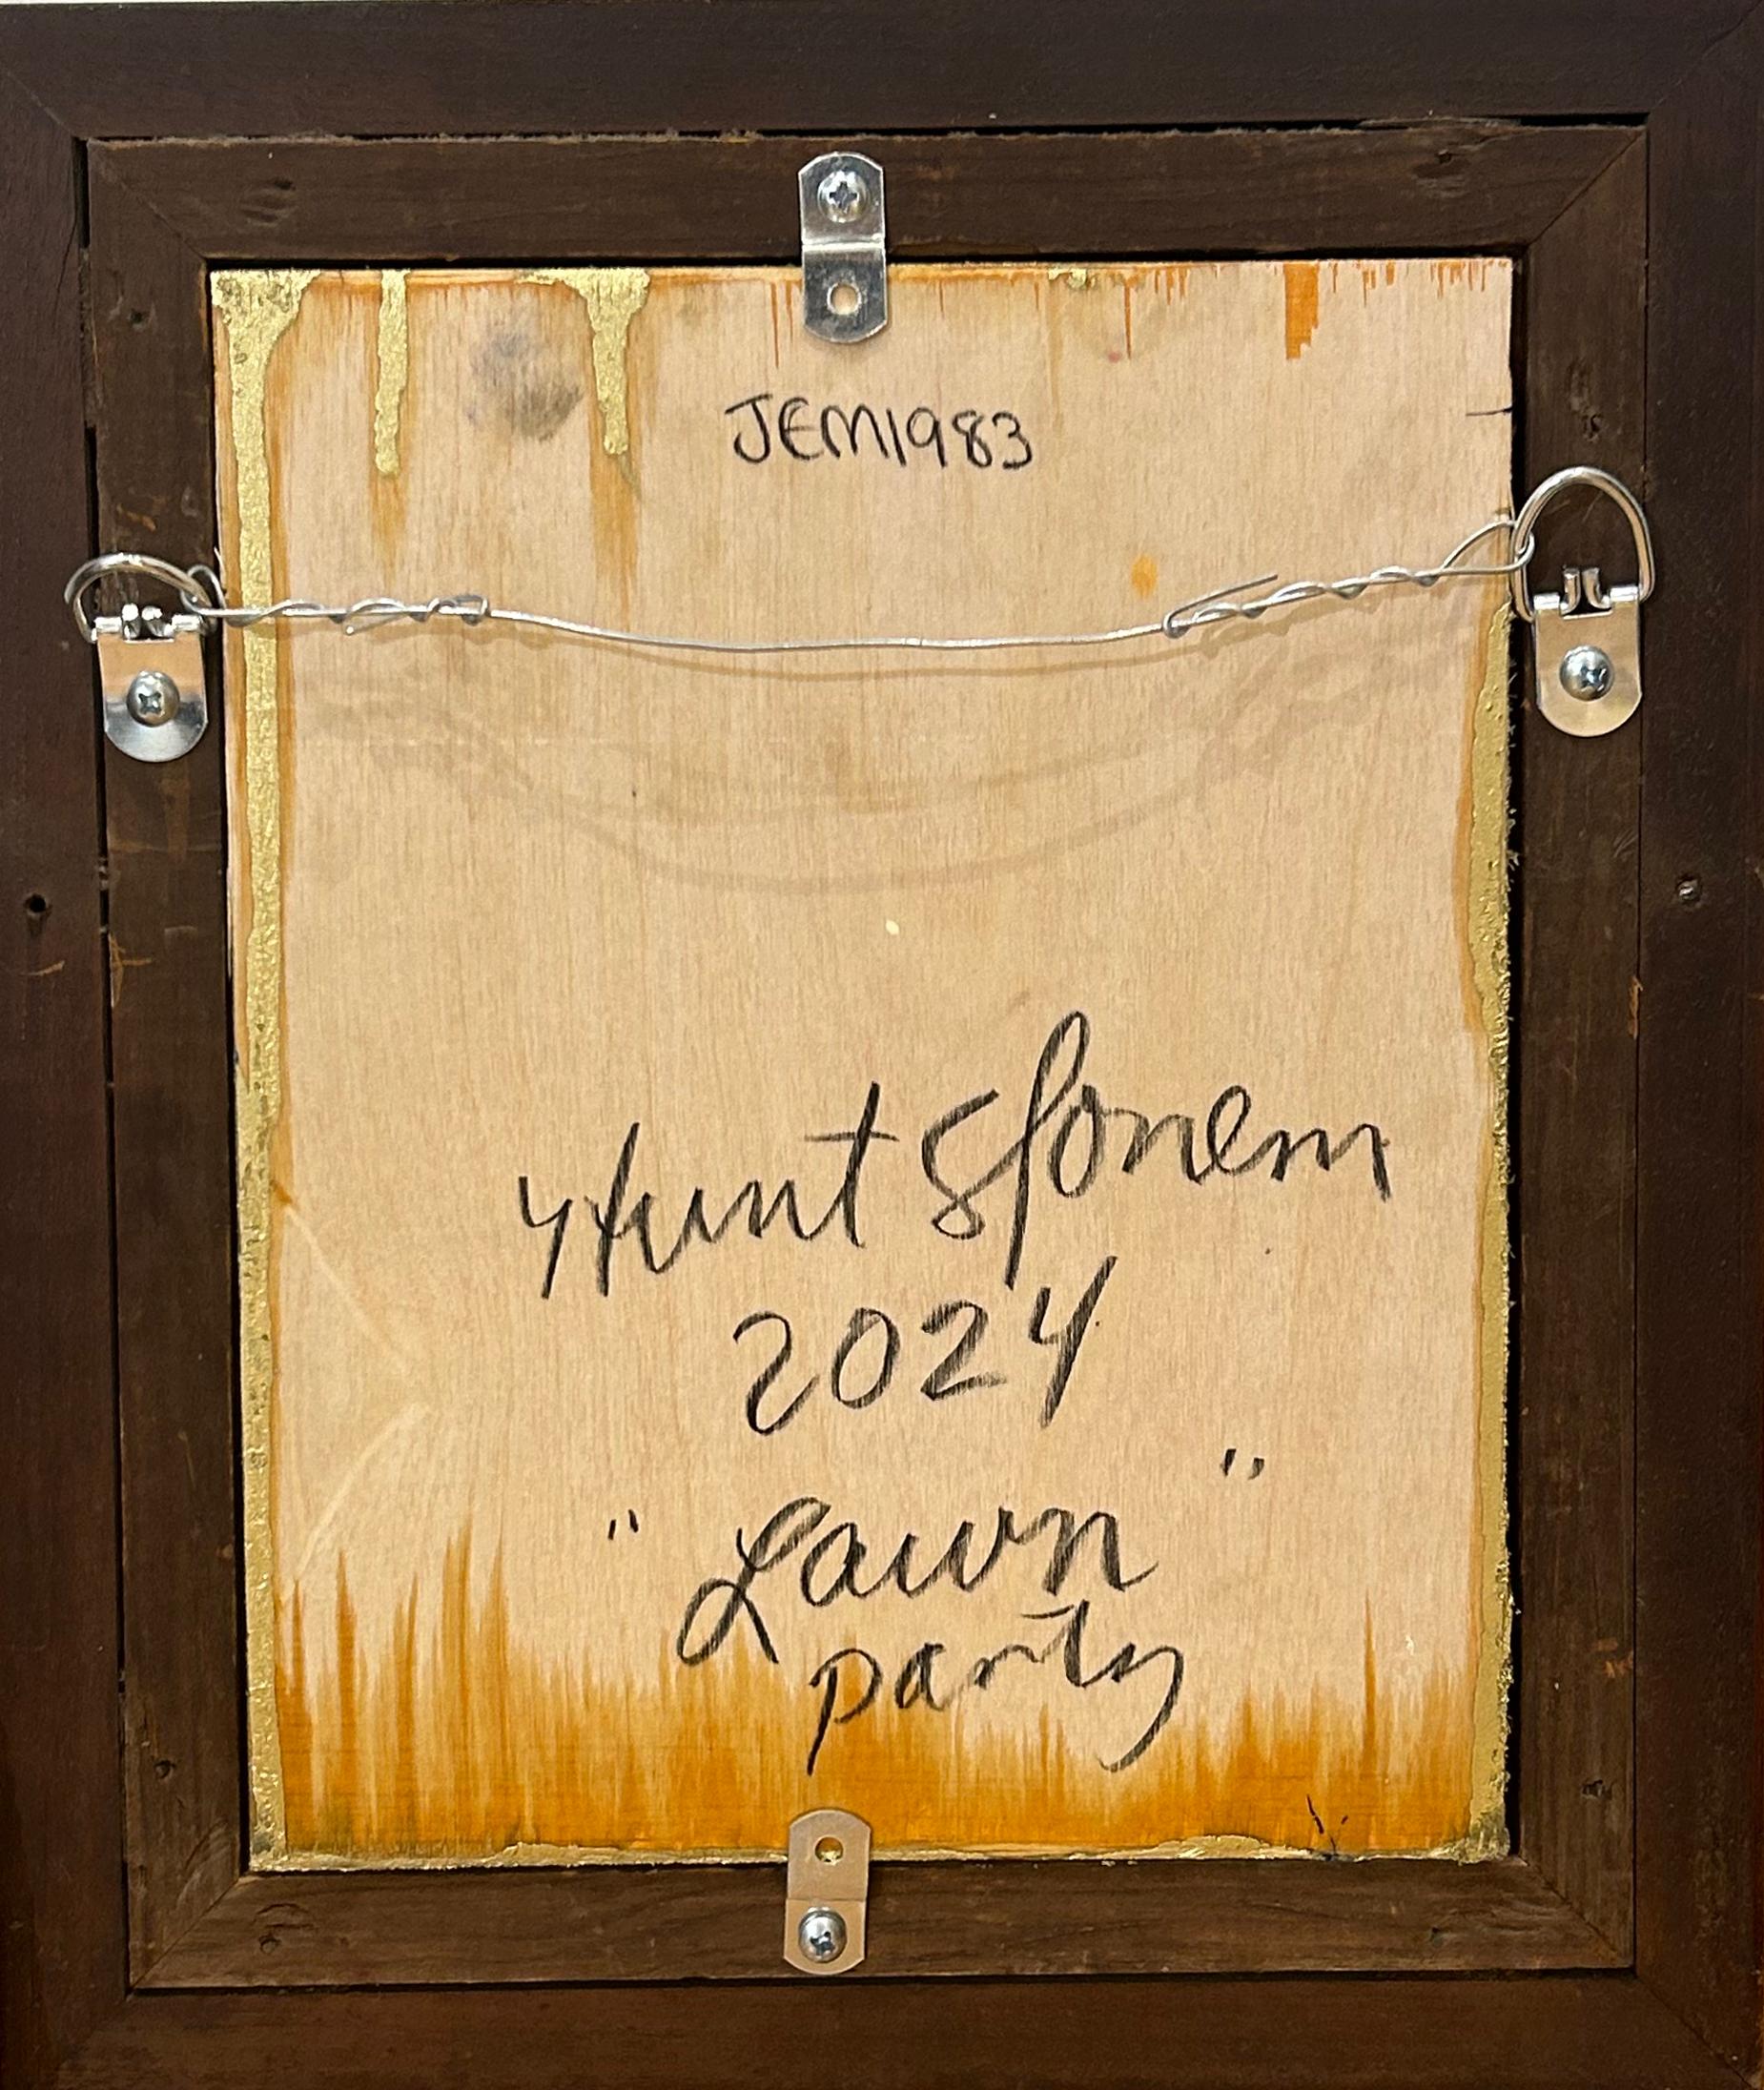 JEM1983
Hunt Slonem
2024
"Lawn"
party